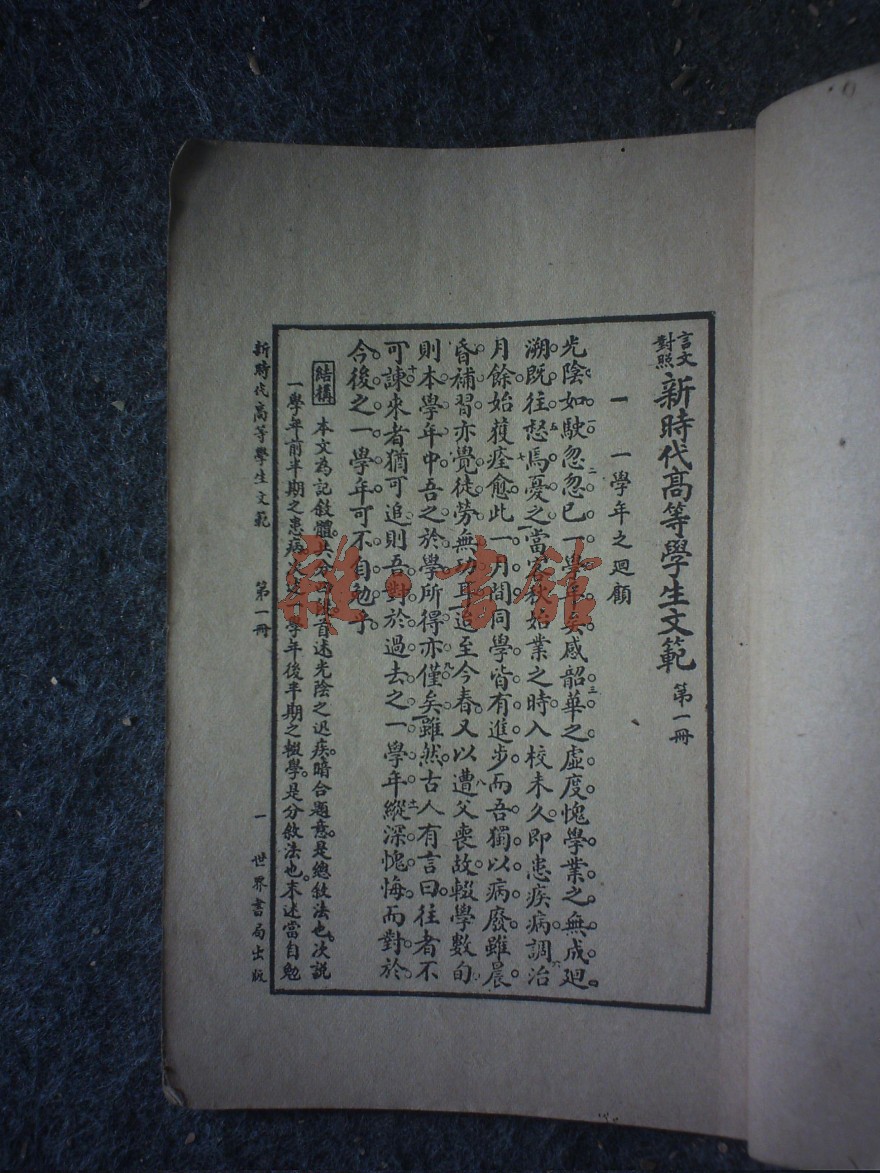 言文對照 新時代高等學生文範 第一冊
一 一學年之迴顧
光陰如駛忽忽已一學年矣感韶華之虛度愧學業之無成迴
溯既往惄焉憂之當客秋始業之時入校未久即患疾病調治
月餘始獲痊愈此一月間同學皆有進步而吾獨以病廢雖晨
昏補習亦覺徒勞無功耳迨至今春又以遭父喪故輟學數旬
則本學年中吾之於學所得亦僅矣雖然古人有言曰往者不
可諫來者猶可追則吾對於過去之一學年縱深愧悔而對於
今後之一學年可不自勉乎
結構 本文為記敘體共分四段首述光陰之迅疾暗合題意是總敘法也次說
一學年前半期之患病又述一學年後半期之輟學是分敘法也末述當自勉
新時代高等學生文範 第一冊 一 世界書局出版
雜·書館